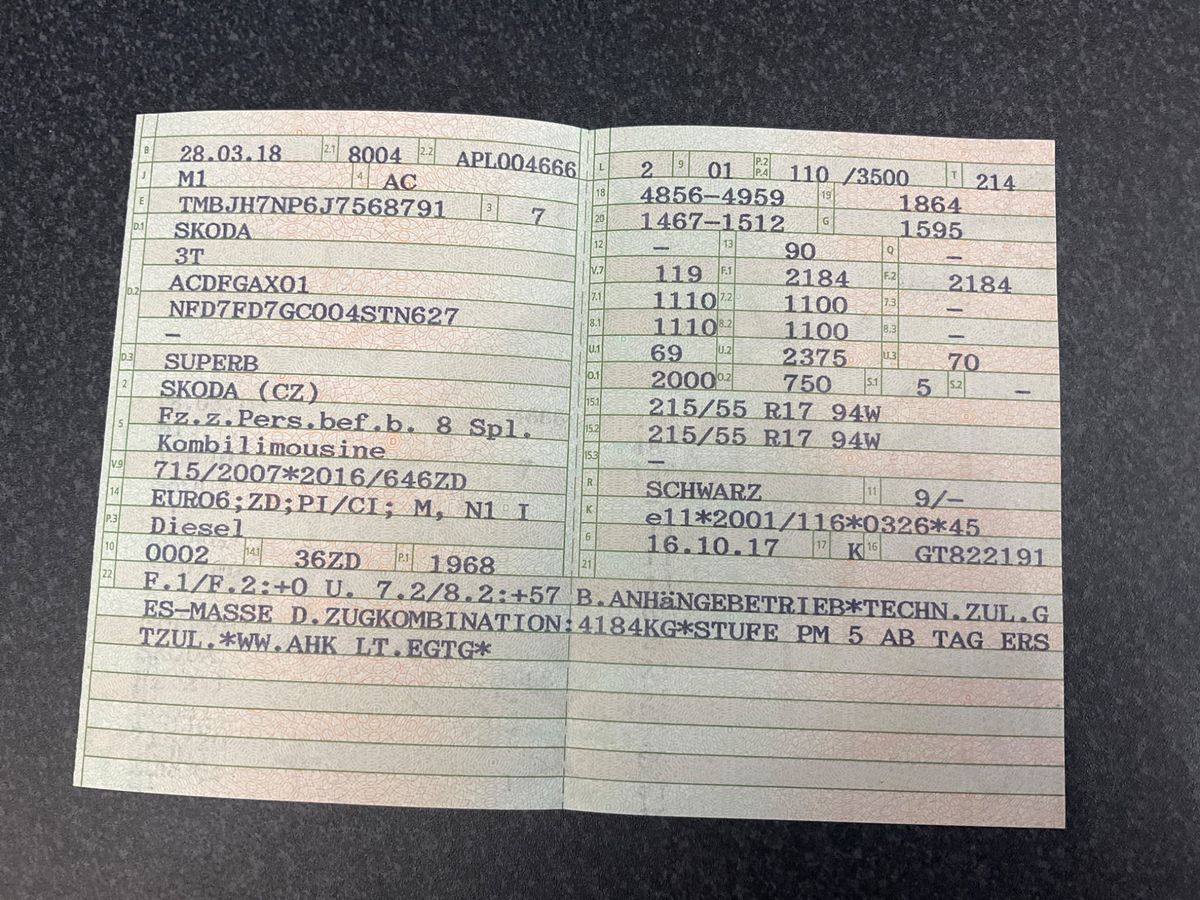 B 28.03.18 2.1 8004 2.2 APL004666
J M1 4 AC
E TMBJH7NP6J7568791 3 7
D.1 SKODA
3T
D.2 ACDFGAX01
NFD7FD7GC004STN627
–
D.3 SUPERB
2 SKODA (CZ)
5 Fz.z.Pers.bef.b. 8 Spl.
Kombilimousine
V.9 715/2007*2016/646ZD
14 EURO6;ZD;PI/CI; M, N1 I
P.3 Diesel
10 0002 14.1 36ZD P.1 1968
L 2 9 01 P.2 P.4 110 /3500 T 214
18 4856–4959 19 1864
20 1467–1512 G 1595
12 – 13 90 Q –
V.7 119 F.1 2184 F.2 2184
7.1 1110 7.2 1100 7.3 –
8.1 1110 8.2 1100 8.3 –
U.1 69 U.2 2375 U.3 70
O.1 2000 O.2 750 S.1 5 S.2 –
15.1 215/55 R17 94W
15.2 215/55 R17 94W
15.3 –
R SCHWARZ 11 9/–
K e11*2001/116*0326*45
6 16.10.17 17 K 16 GT822191
21
22 F.1/F.2:+0 U. 7.2/8.2:+57 B.ANHäNGEBETRIEB*TECHN.ZUL.G
ES–MASSE D.ZUGKOMBINATION:4184KG*STUFE PM 5 AB TAG ERS
TZUL.*WW.AHK LT.EGTG*